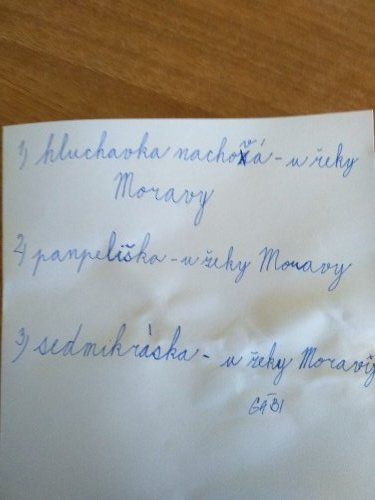 1) hluchavka nachová - u řeky
Moravy
2) panpeliška - u řeky Moravy
3) sedmikráska - u řeky Moravy
GÁBI